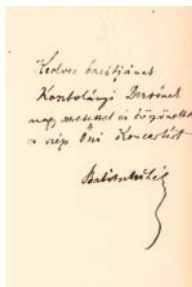 Kedves barátjának
Kosztolányi Dezsőnek
nagy szeretettel és köszönettel
a szép Őszi Koncertért
Babits Mihály